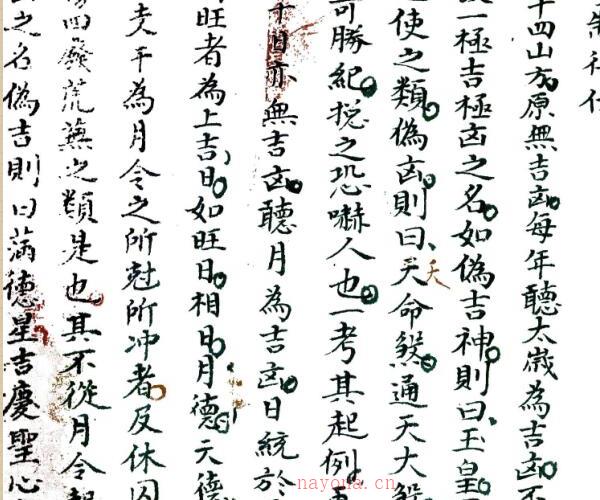 十四山方原無吉凶每年聽太歲為吉凶不
一極吉極凶之名如偽吉神則曰玉皇
使之類偽凶則曰天命煞通天大煞
天
可勝紀摠之恐嚇人也一考其起例
干日亦無吉凶聽月為吉凶日統於
旺者為上吉日如旺日相日月德天德
支干為月令之所尅所冲者及休囚
四廢荒蕪之類是也其不從月令
之名偽吉則曰滿德星吉慶聖心
nayona.cn